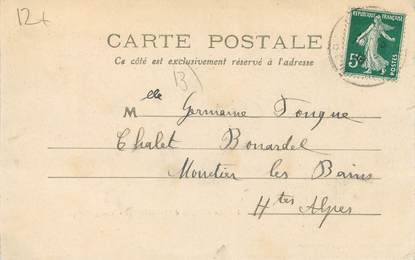 12+
RÉPUBLIQUE FRANÇAISE
CARTE POSTALE
5c
POSTES
Ce côté est exclusivement réservé à l'adresse
13)
Melle Germaine Tongue
Chalet Bonardel
Monetier les Bains
Htes Alpes